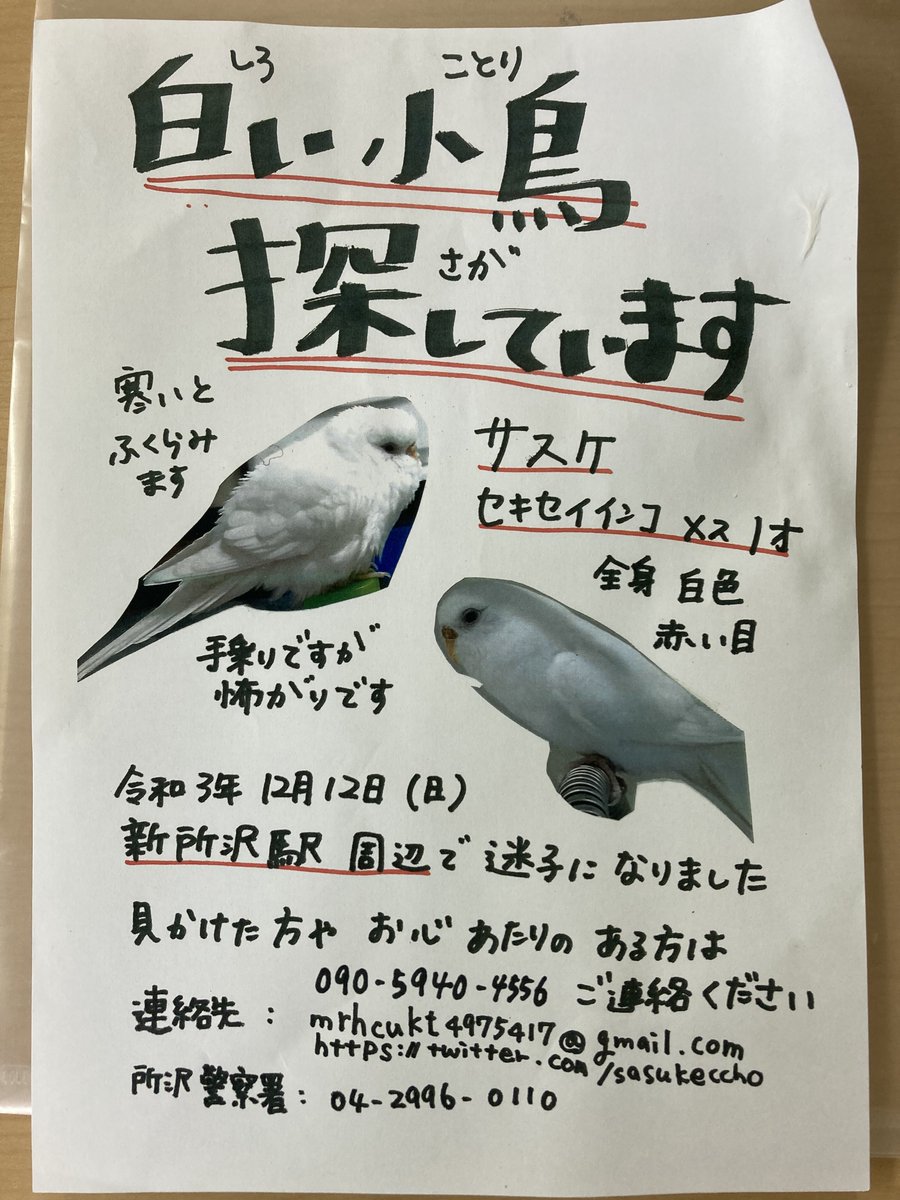 しろ ことり
白い小鳥
探しています
さが
寒いと
ふくらみ
ます
サスケ
セキセイインコ メス 1才
全身 白色
赤い目
手乗りですが
怖がりです
令和3年 12月12日(日)
新所沢駅 周辺で 迷子に なりました
見かけた方や お心あたりの ある方は
090-5940-4556 ご連絡ください
連絡先: mrhcukt4975417@gmail.com
https://twitter.com/sasukeccho
所沢警察署: 04-2996-0110